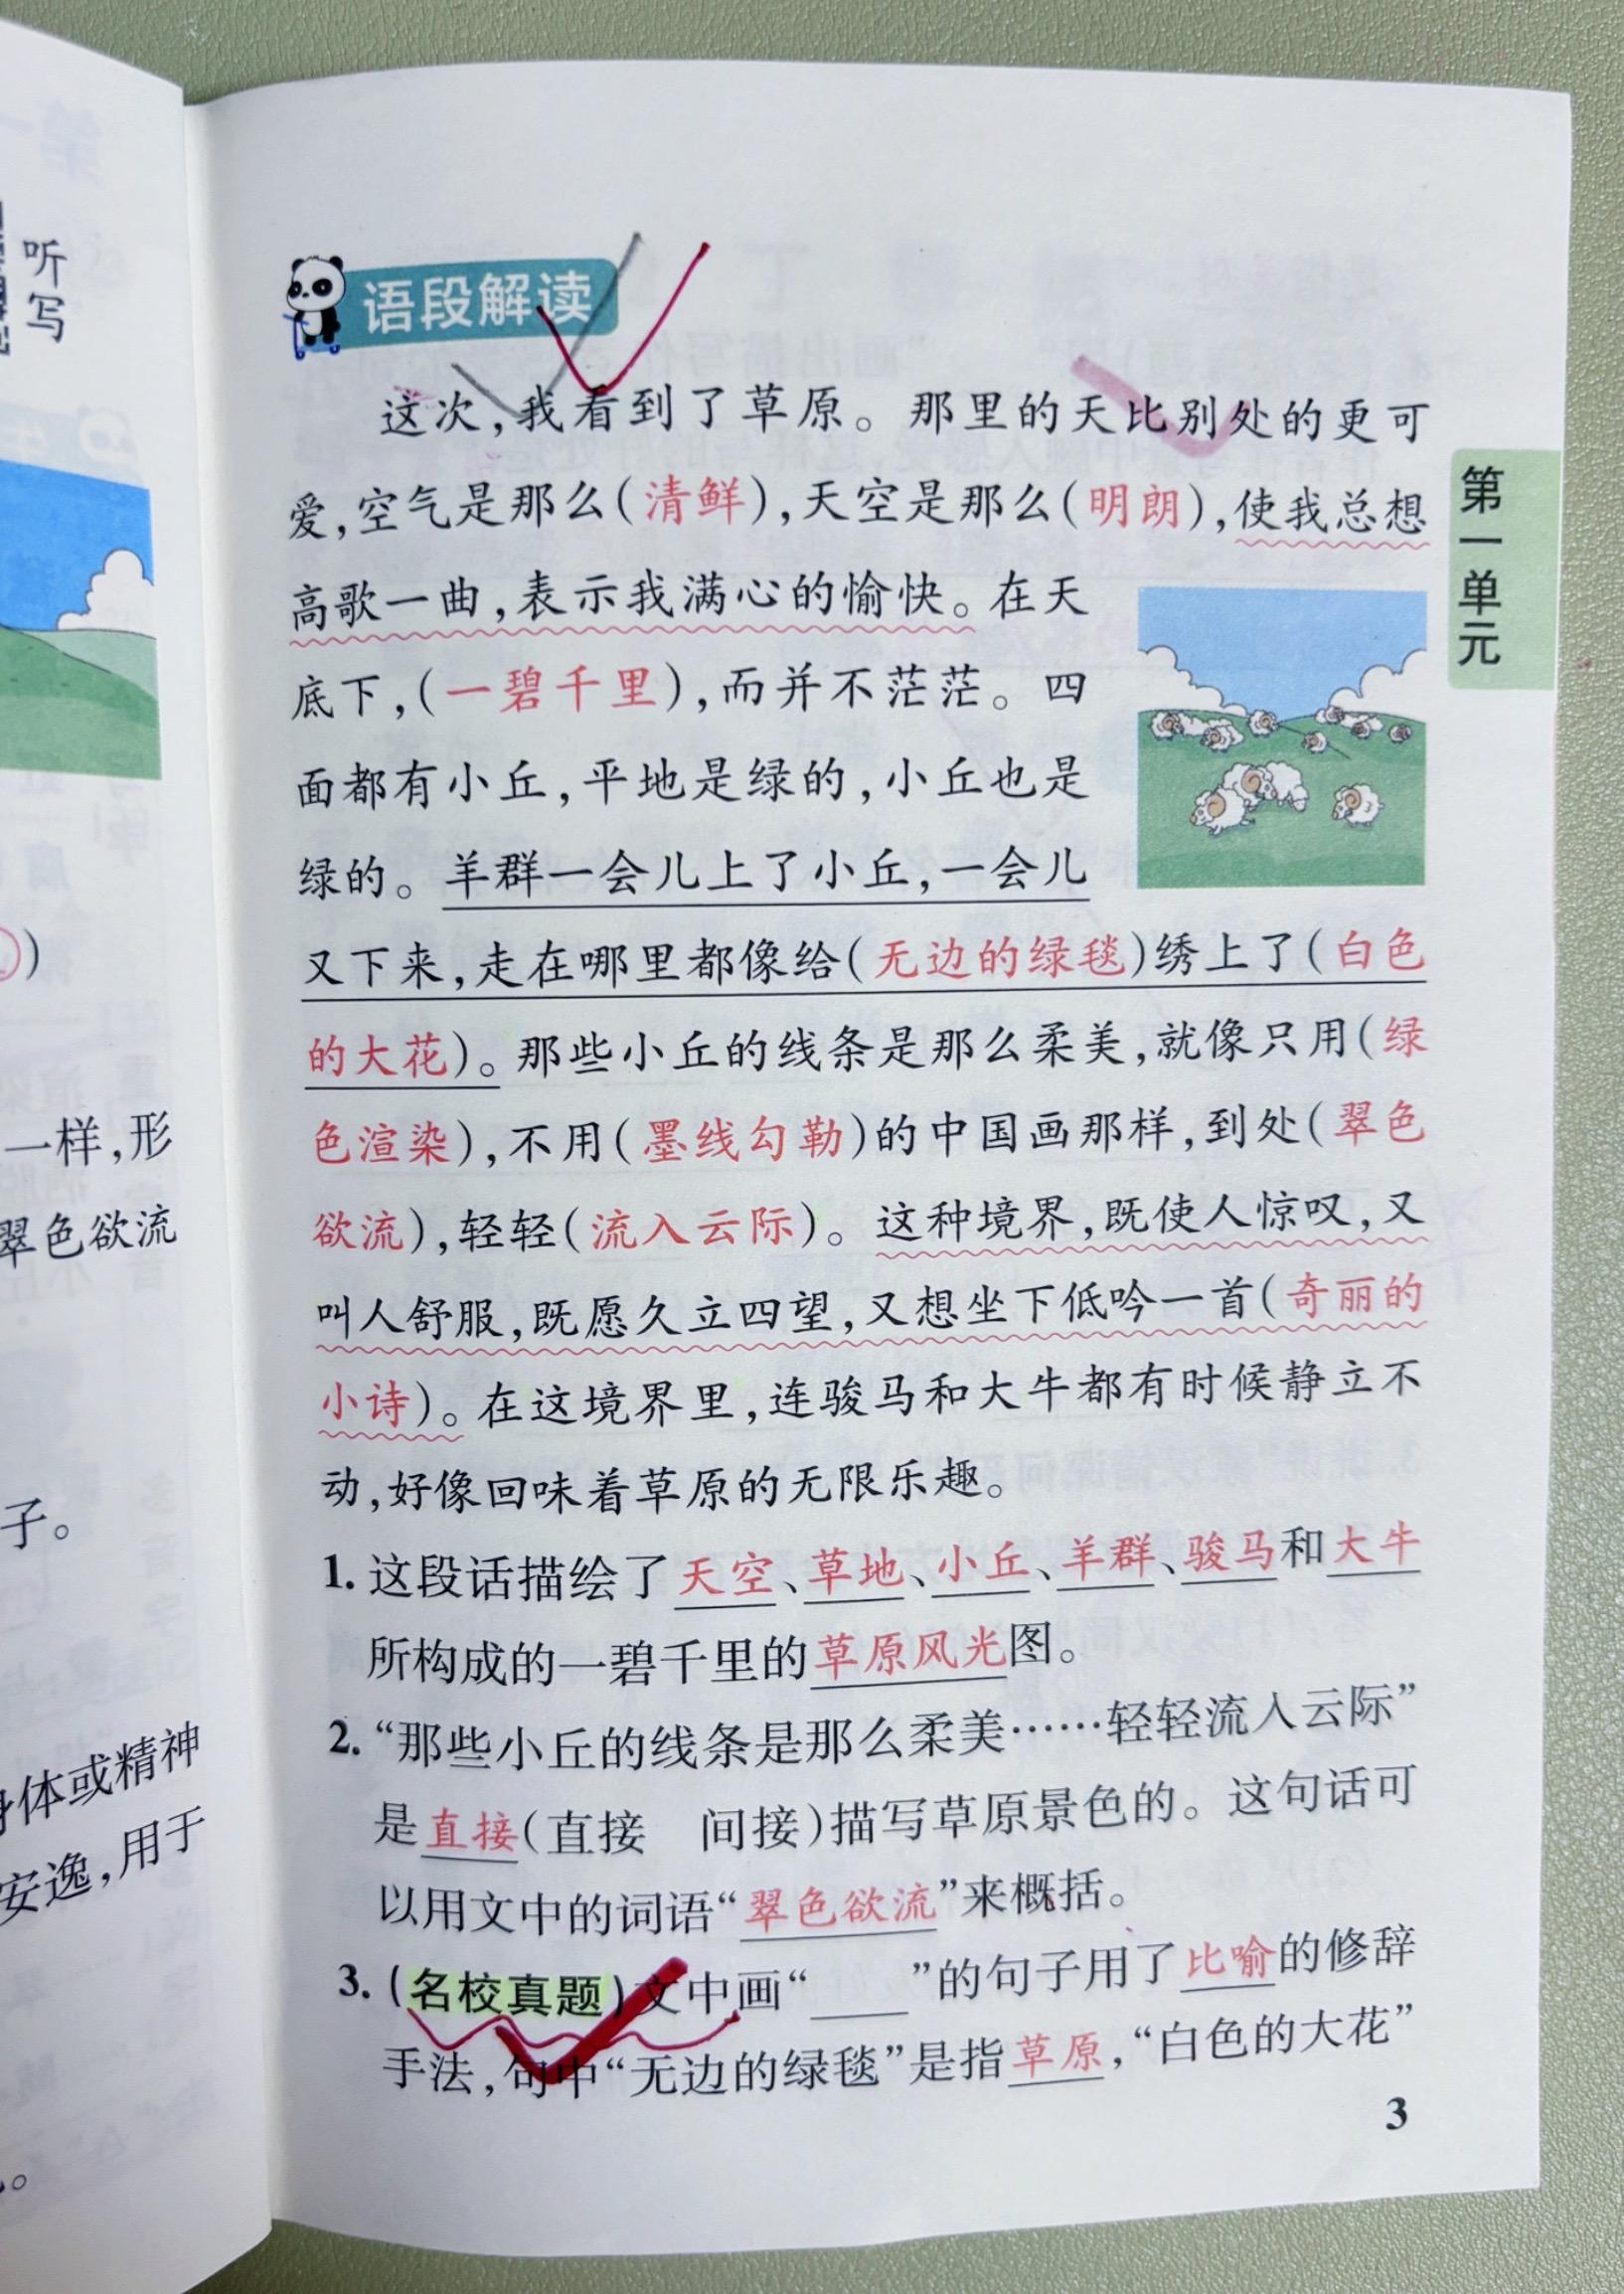 听
写
一样,形
翠色欲流
子。
身体或精神
安逸,用于
语段解读
这次,我看到了草原。那里的天比别处的更可
爱,空气是那么(清鲜),天空是那么(明朗),使我总想
高歌一曲,表示我满心的愉快。在天
底下,(一碧千里),而并不茫茫。四
面都有小丘,平地是绿的,小丘也是
绿的。羊群一会儿上了小丘,一会儿
又下来,走在哪里都像给(无边的绿毯)绣上了(白色
的大花)。那些小丘的线条是那么柔美,就像只用(绿
色渲染),不用(墨线勾勒)的中国画那样,到处(翠色
欲流),轻轻(流入云际)。这种境界,既使人惊叹,又
叫人舒服,既愿久立四望,又想坐下低吟一首(奇丽的
小诗)。在这境界里,连骏马和大牛都有时候静立不
动,好像回味着草原的无限乐趣。
1. 这段话描绘了天空、草地、小丘、羊群、骏马和大牛
所构成的一碧千里的草原风光图。
2. “那些小丘的线条是那么柔美……轻轻流入云际”
是直接(直接 间接)描写草原景色的。这句话可
以用文中的词语“翠色欲流”来概括。
3. (名校真题)文中画“____”的句子用了比喻的修辞
手法,句中“无边的绿毯”是指草原,“白色的大花”
3
第一单元